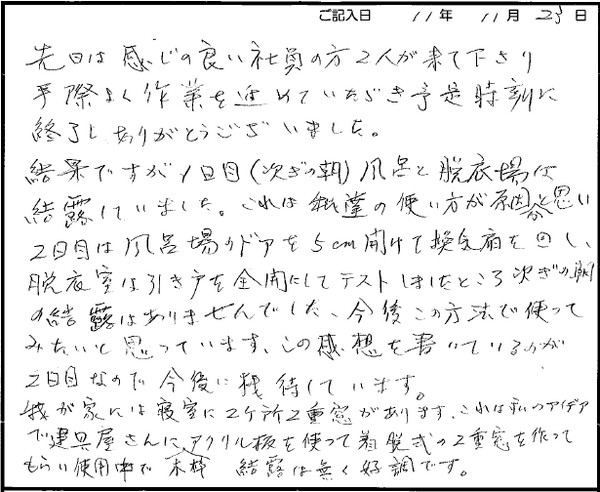 ご記入日 11年 11月 23日
先日は感じの良い社員の方2人が来て下さり
手際よく作業を進めていただき予定時刻に
終了しありがとうございました。
結果ですが1日目(次ぎの朝)風呂と脱衣場は
結露していました。これは の使い方が原因かと思い
2日目は風呂場のドアを5cm開けて換気扇を回し、
脱衣室は引き戸を全開にしてテストしましたところ次ぎの朝
の結露はありませんでした、今後この方法で使って
みたいと思っています、この感想を書いているのが
2日目なので今後に期待しています。
我が家には寝室に2ケ所2重窓があります、これは私のアイデア
で建具屋さんにアクリル板を使って着脱式の2重窓を作って
もらい使用中で 木枠 結露は無く好調です。